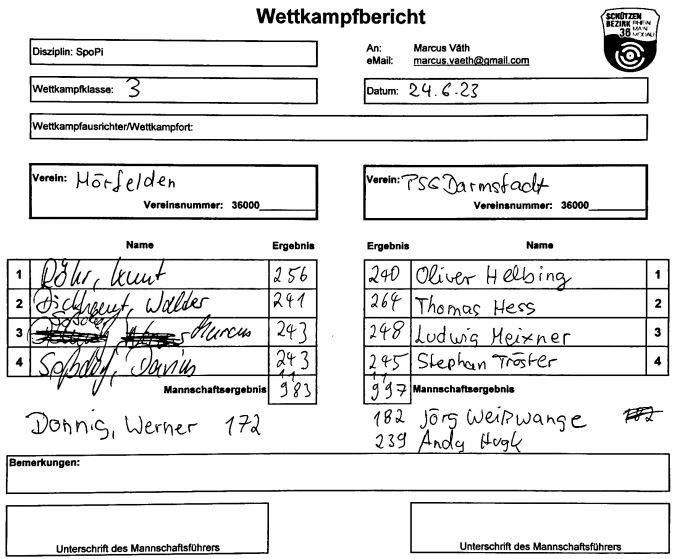 Wettkampfbericht
SCHÜTZEN
BEZIRK RHEIN
36 MAIN
MODAU
Disziplin: SpoPi
An: Marcus Väth
eMail: marcus.vaeth@gmail.com
Wettkampfklasse: 3
Datum: 24.6.23
Wettkampfausrichter/Wettkampfort:
Verein: Mörfelden
Vereinsnummer: 36000
Verein: PSG Darmstadt
Vereinsnummer: 36000
Name Ergebnis Ergebnis Name
1 Röhr, 256 240 Oliver Helbing 1
2 Walder 241 264 Thomas Hess 2
3 Marcus 243 248 Ludwig Meixner 3
4 Darius 243 245 Stephan Tröster 4
Mannschaftsergebnis 983 997 Mannschaftsergebnis
Donnig, Werner 172
182 Jörg Weißwange 182
239 Andy Hugk
Bemerkungen:
Unterschrift des Mannschaftsführers
Unterschrift des Mannschaftsführers